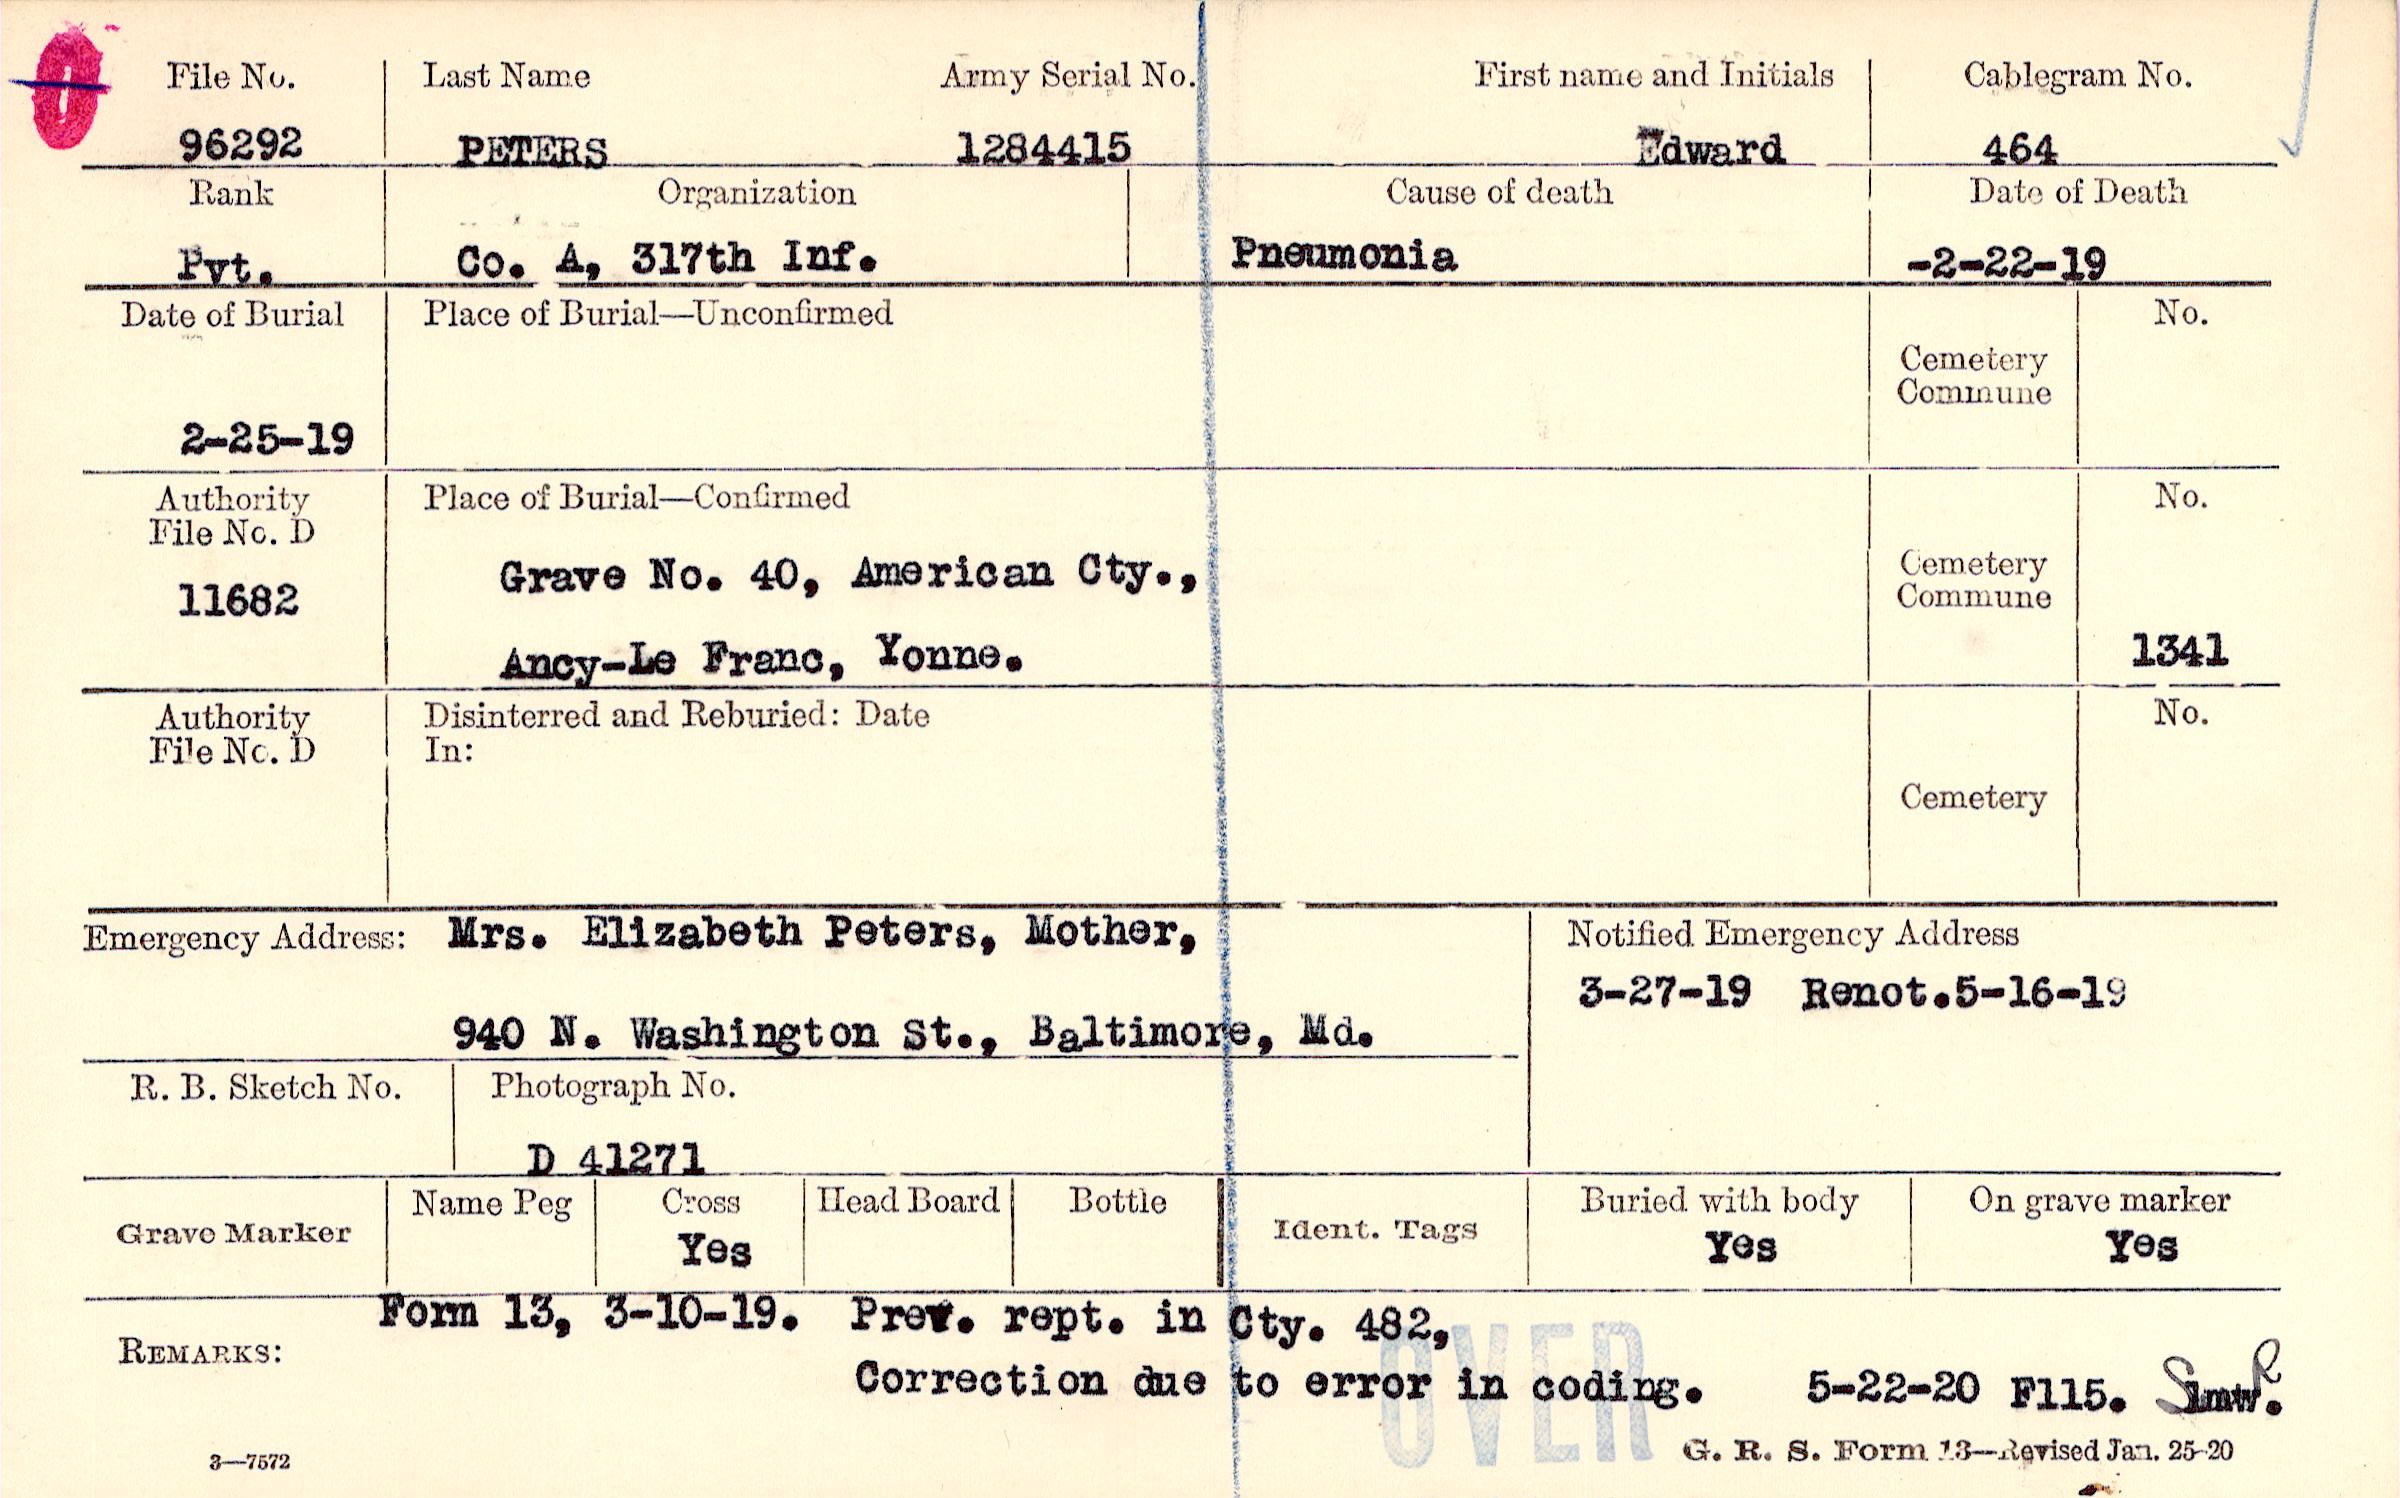 File No. Last Name Army Serial No. First name and Initials Cablegram No.
96292 PETERS 1284415 Edward 464
Rank Organization Cause of death Date of Death
Pvt. Co. A, 317th Inf. Pneumonia -2-22-19
Date of Burial Place of Burial—Unconfirmed No.
Cemetery
Commune
2-25-19
Authority Place of Burial—Confirmed No.
File No. D
Grave No. 40, American Cty., Cemetery
11682 Commune
Ancy-Le Franc, Yonne. 1341
Authority Disinterred and Reburied: Date No.
File No. D In:
Cemetery
Emergency Address: Mrs. Elizabeth Peters, Mother, Notified Emergency Address
3-27-19 Renot.5-16-19
940 N. Washington St., Baltimore, Md.
R. B. Sketch No. Photograph No.
D 41271
Grave Marker Name Peg Cross Head Board Bottle Ident. Tags Buried with body On grave marker
Yes Yes Yes
Form 13, 3-10-19. Prev. rept. in Cty. 482,
REMARKS:
Correction due to error in coding. 5-22-20 F115.
OVER
3—7572 G. R. S. Form 13—Revised Jan. 25-20